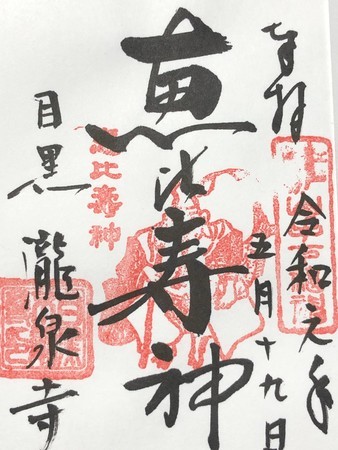 奉拝
令和元年
五月十九日
恵比寿神
恵比寿神
目黒
瀧泉寺